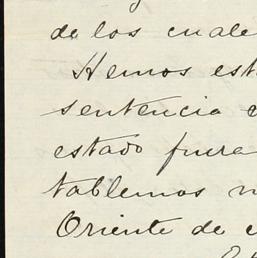 de los cuale
Hemos est
sentencia
estado fuera
tablemos
Oriente de